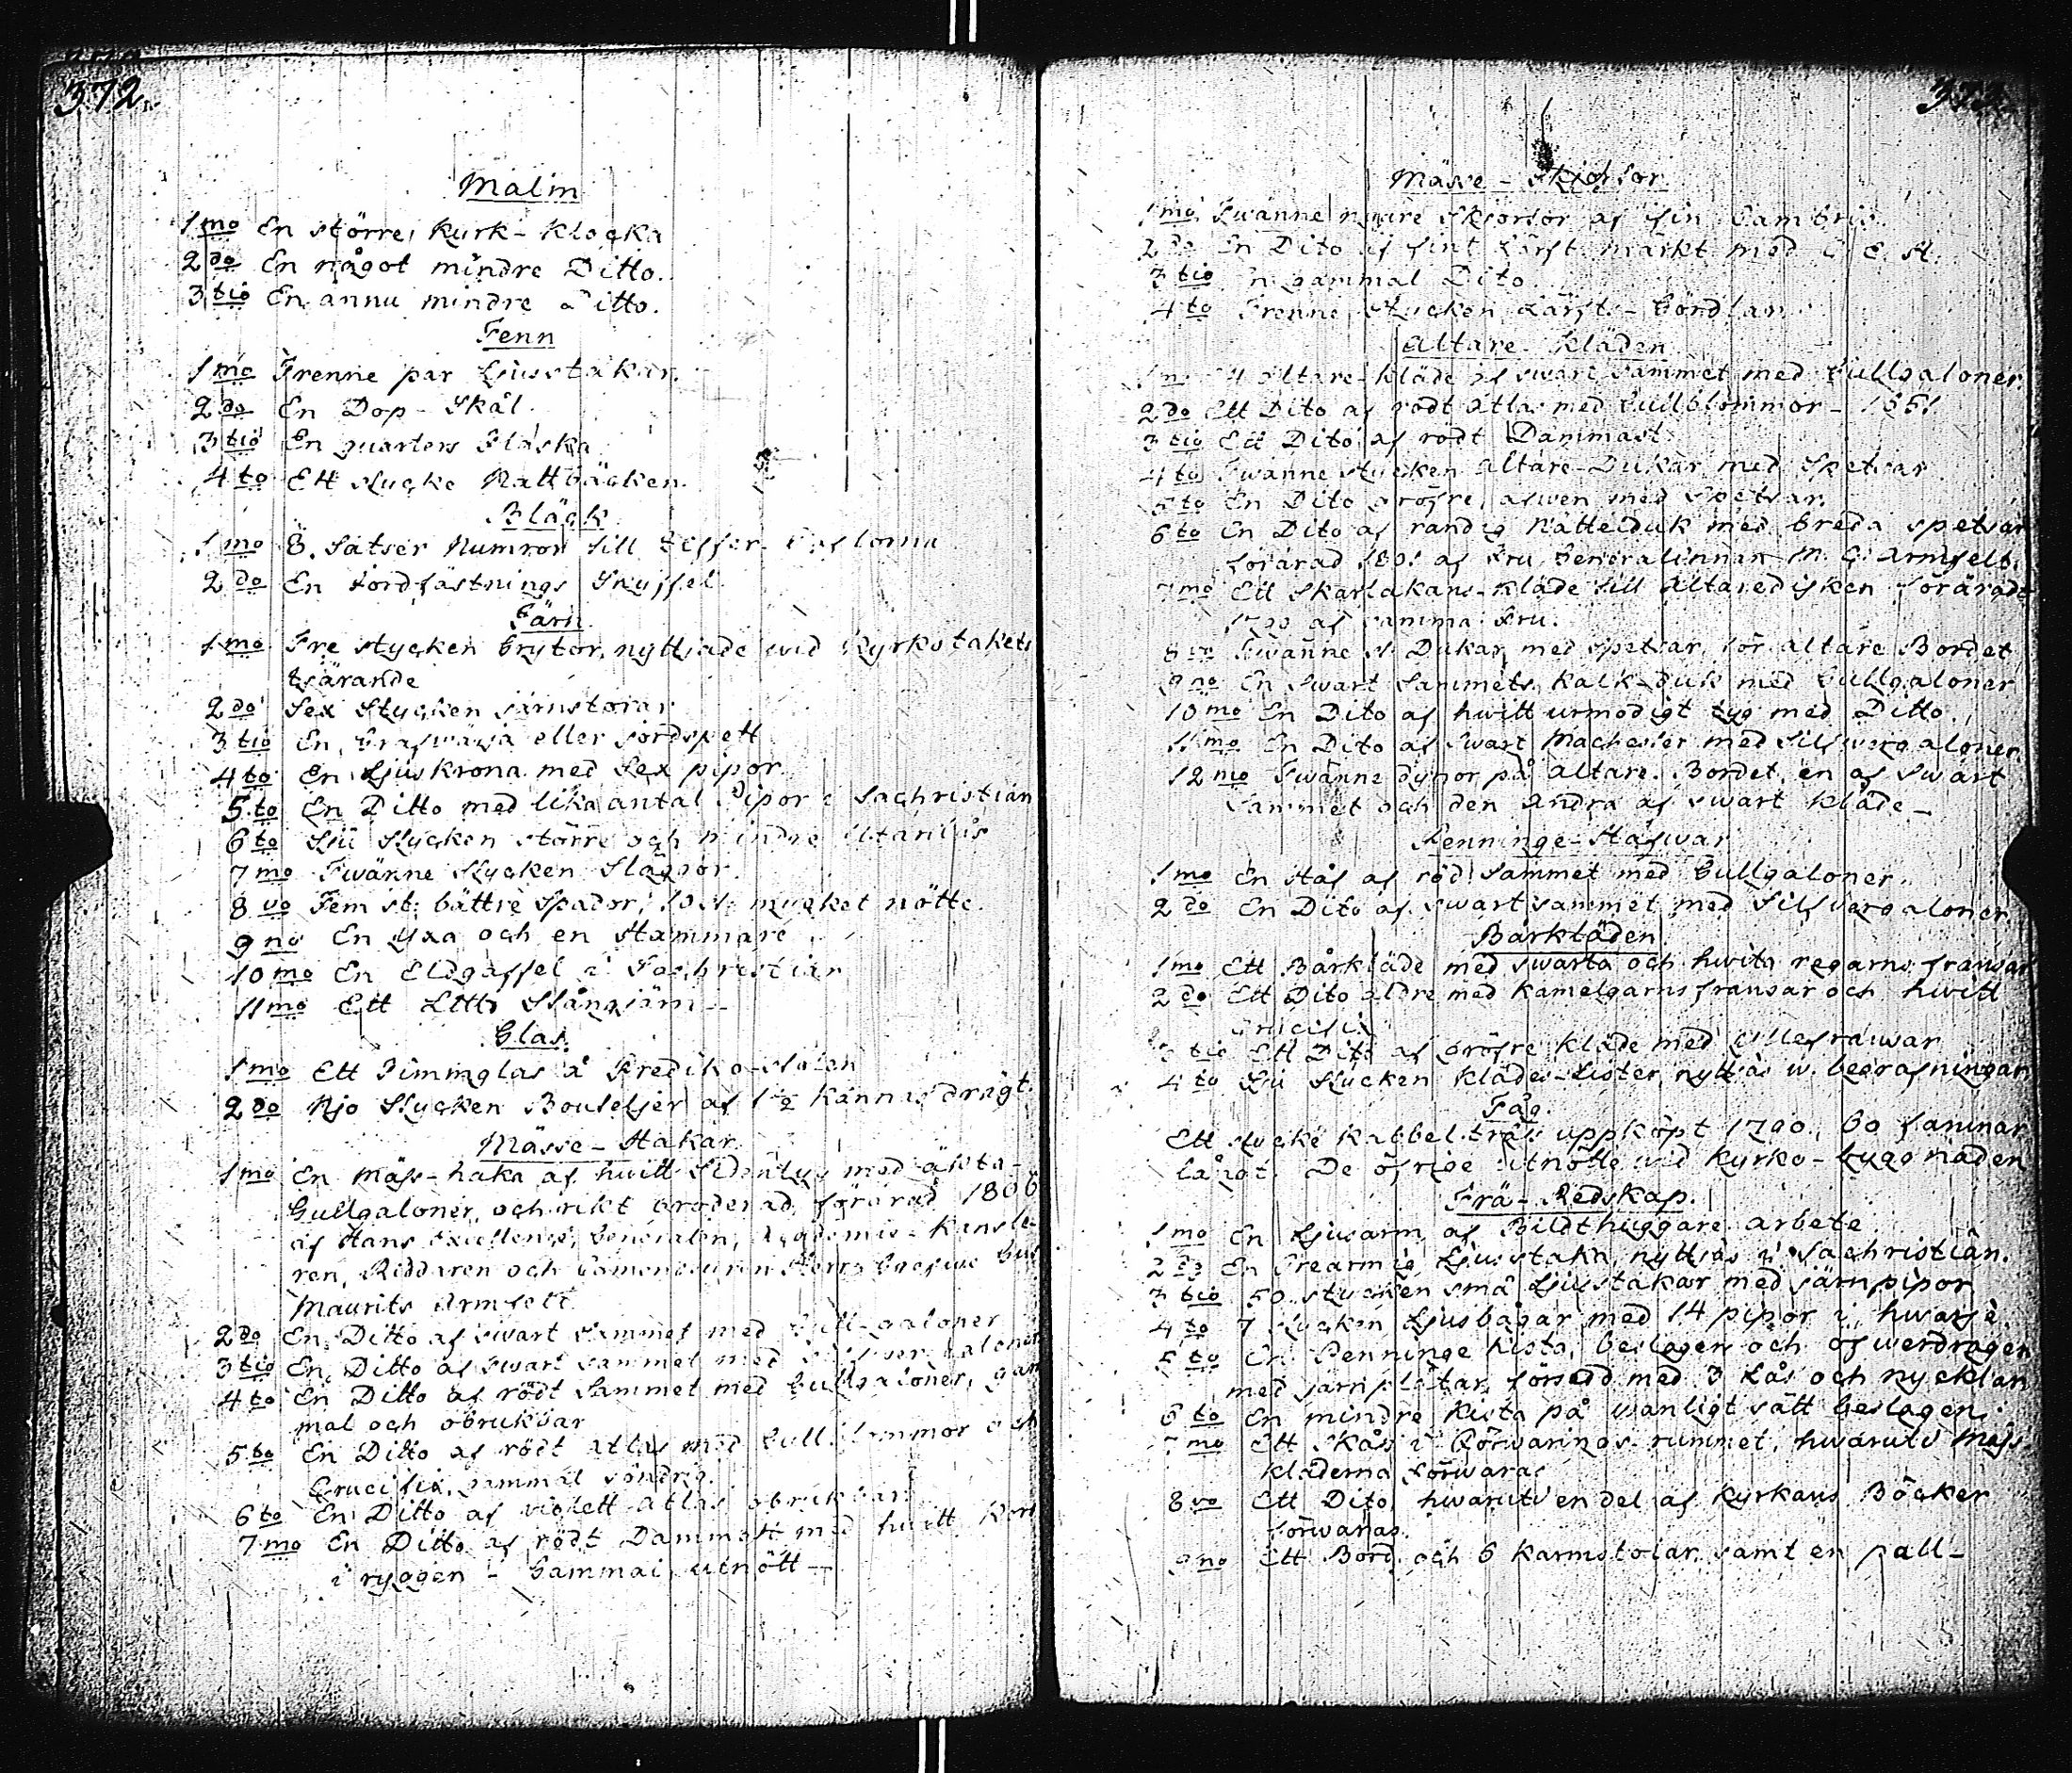 372.
Malm
1mo En större kyrk-klocka
2do En något mindre Ditto.
3tio En ännu mindre Ditto.
Tenn
1mo Trenne par Ljusstakar.
2do En Dop-Skål.
3tio En quarters Flaska
4to Ett stycke Nattbäcken.
Bläck
1mo 8. Satser Numror till
2do En Jordfästnings Skyffel.
Järn.
1mo Tre stycken Grytor, nyttjade wid Kyrkotakets
tjärande
2do Sex Stycken järnstörar
3tio En eller jordspett
4to En Ljuskrona med Sex pipor.
5to En Ditto med lika antal Pipor i Sachristian
6to Sju Stycken större och mindre
7mo Twänne Stycken Släggor.
8vo Fem st: bättre Spador, 10 st: mycket nötte.
9no En Yxa och en Hammare
10mo En Eldgaffel i Sachristian
11mo Ett Litto Stångjärn
Glas.
1mo Ett Timmglas å Prediko-stolen
2do Njo Stycken Bouteljer af 1½ Kannas drägt.
Mässe-Hakar.
1mo En Mäss-haka af hwitt Sidentyg med äkta-
Gullgaloner, och rikt broderad, förärad 1806
af Hans Excellence, Generalen, Academie-Kansle
ren, Riddaren och Herr Grefwe Gust
Maurits Armfelt.
2do En Ditto af Swart Sammet med Gull-galoner
3tio En Ditto af Swart Sammet med Silfwer galoner
4to En Ditto af rödt Sammet med Gullgaloner, gam
mal och obrukbar
5to En Ditto af rödt atlas med Gullblommor och
Crucifix, gammal söndrig.
6to En Ditto af violett atlas obrukbar.
7mo En Ditto af rödt Dammast med hwitt Kors
i ryggen - Gammal, utnött -
373.
Mässe-Skjortor.
1mo Twänne nyare Skjortor af fin Cambric.
2do En Dito af fint Lärft märkt med E. H.
3tio En gammal Dito
4to Trenne Stycken Lärfts-Gördlar
Altare-Kläden
1mo Ett Altare-kläde af swart Sammet med Gullgaloner
2do Ett Dito af rödt atlas med Gullblommor -
3tio Ett Dito af rödt Dammast
4to Twänne stycken altare-Dukar med Spetsar
5to En Dito gröfre, äfwen med Spetsar.
6to En Dito af randig Nätteduk med breda spetsar
förärad 1801 af Fru Generalinnan M. G. Armfelt.
7mo Ett Skarlakans-kläde till Altaredisken föräradt
af samma Fru.
8vo Twänne st Dukar med spetsar, för altare Bordet
9no En Swart Sammets, Kalk-duk med Gullgaloner
10mo En Dito af hwitt urmodigt tyg med Ditto.
11mo En Dito af Swart Machester med Silfwergaloner.
12mo Twänne dynor på altare-Bordet, en af Swart
Sammet och den andra af swart kläde -
Penninge-Håfwar
1mo En Håf af röd Sammet med Gullgaloner.
2do En Dito af swart sammet med Silfvergaloner
Bårkläden
1mo Ett Bårkläde med swarta och hwita regarns fransar
2do Ett Dito äldre med Kamelgarns fransar och hwitt
Crucifix
3tio Ett Dito af gröfre kläde med Ullefransar
4to Sju Stycken kläde-Lister, nyttjas w. begrafningar
Tåg.
Ett stycke Kabbeltross uppköpt 1790, 60 famnar
långt. De öfrige utnötte wid Kyrko-byggnaden
Trä-Redskap.
1mo En Ljusarm af Bildthuggare arbete
2do En Trearmig Ljusstaka, nyttjas i Sachristian.
3tio 50. stycken små Ljusstakar med järnpipor
4to 7 Stycken Ljusbågar med 14 pipor i hwarje.
5to En Penninge kista, beslagen och öfwerdragen
med järnplåtar, försedd med 3 Lås och nycklar
6to En mindre Kista på wanligt sätt beslagen.
7mo Ett Skåp i Förwarings-rummet, hwaruti Mäss
kläderna förwaras
8vo Ett Dito, hwaruti en del af Kyrkans Böcker
förwaras.
9no Ett Bord och 6 Karmstolar, samt en pall-